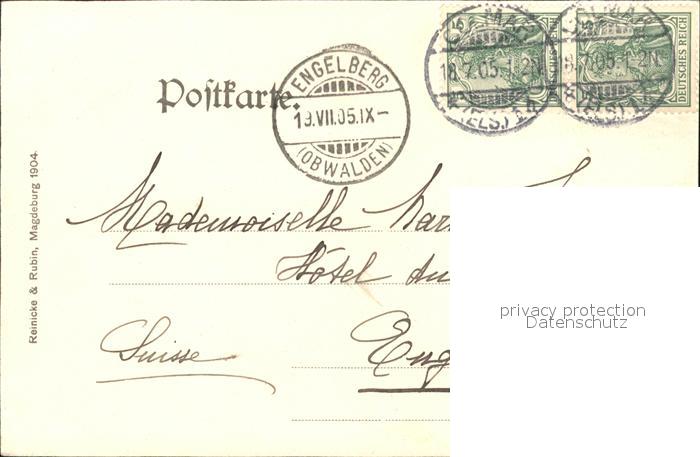 5
5
DEUTSCHES REICH
DEUTSCHES REICH
COLMAR
18.7.05.1-2N.
(ELS.)
8.7.05.1-2N.
(ELS.)
ENGELBERG
19.VII.05.IX-
(OBWALDEN)
Postkarte.
Reinicke & Rubin, Magdeburg 1904.
Mademoiselle
Hôtel
Suisse
privacy protection
Datenschutz